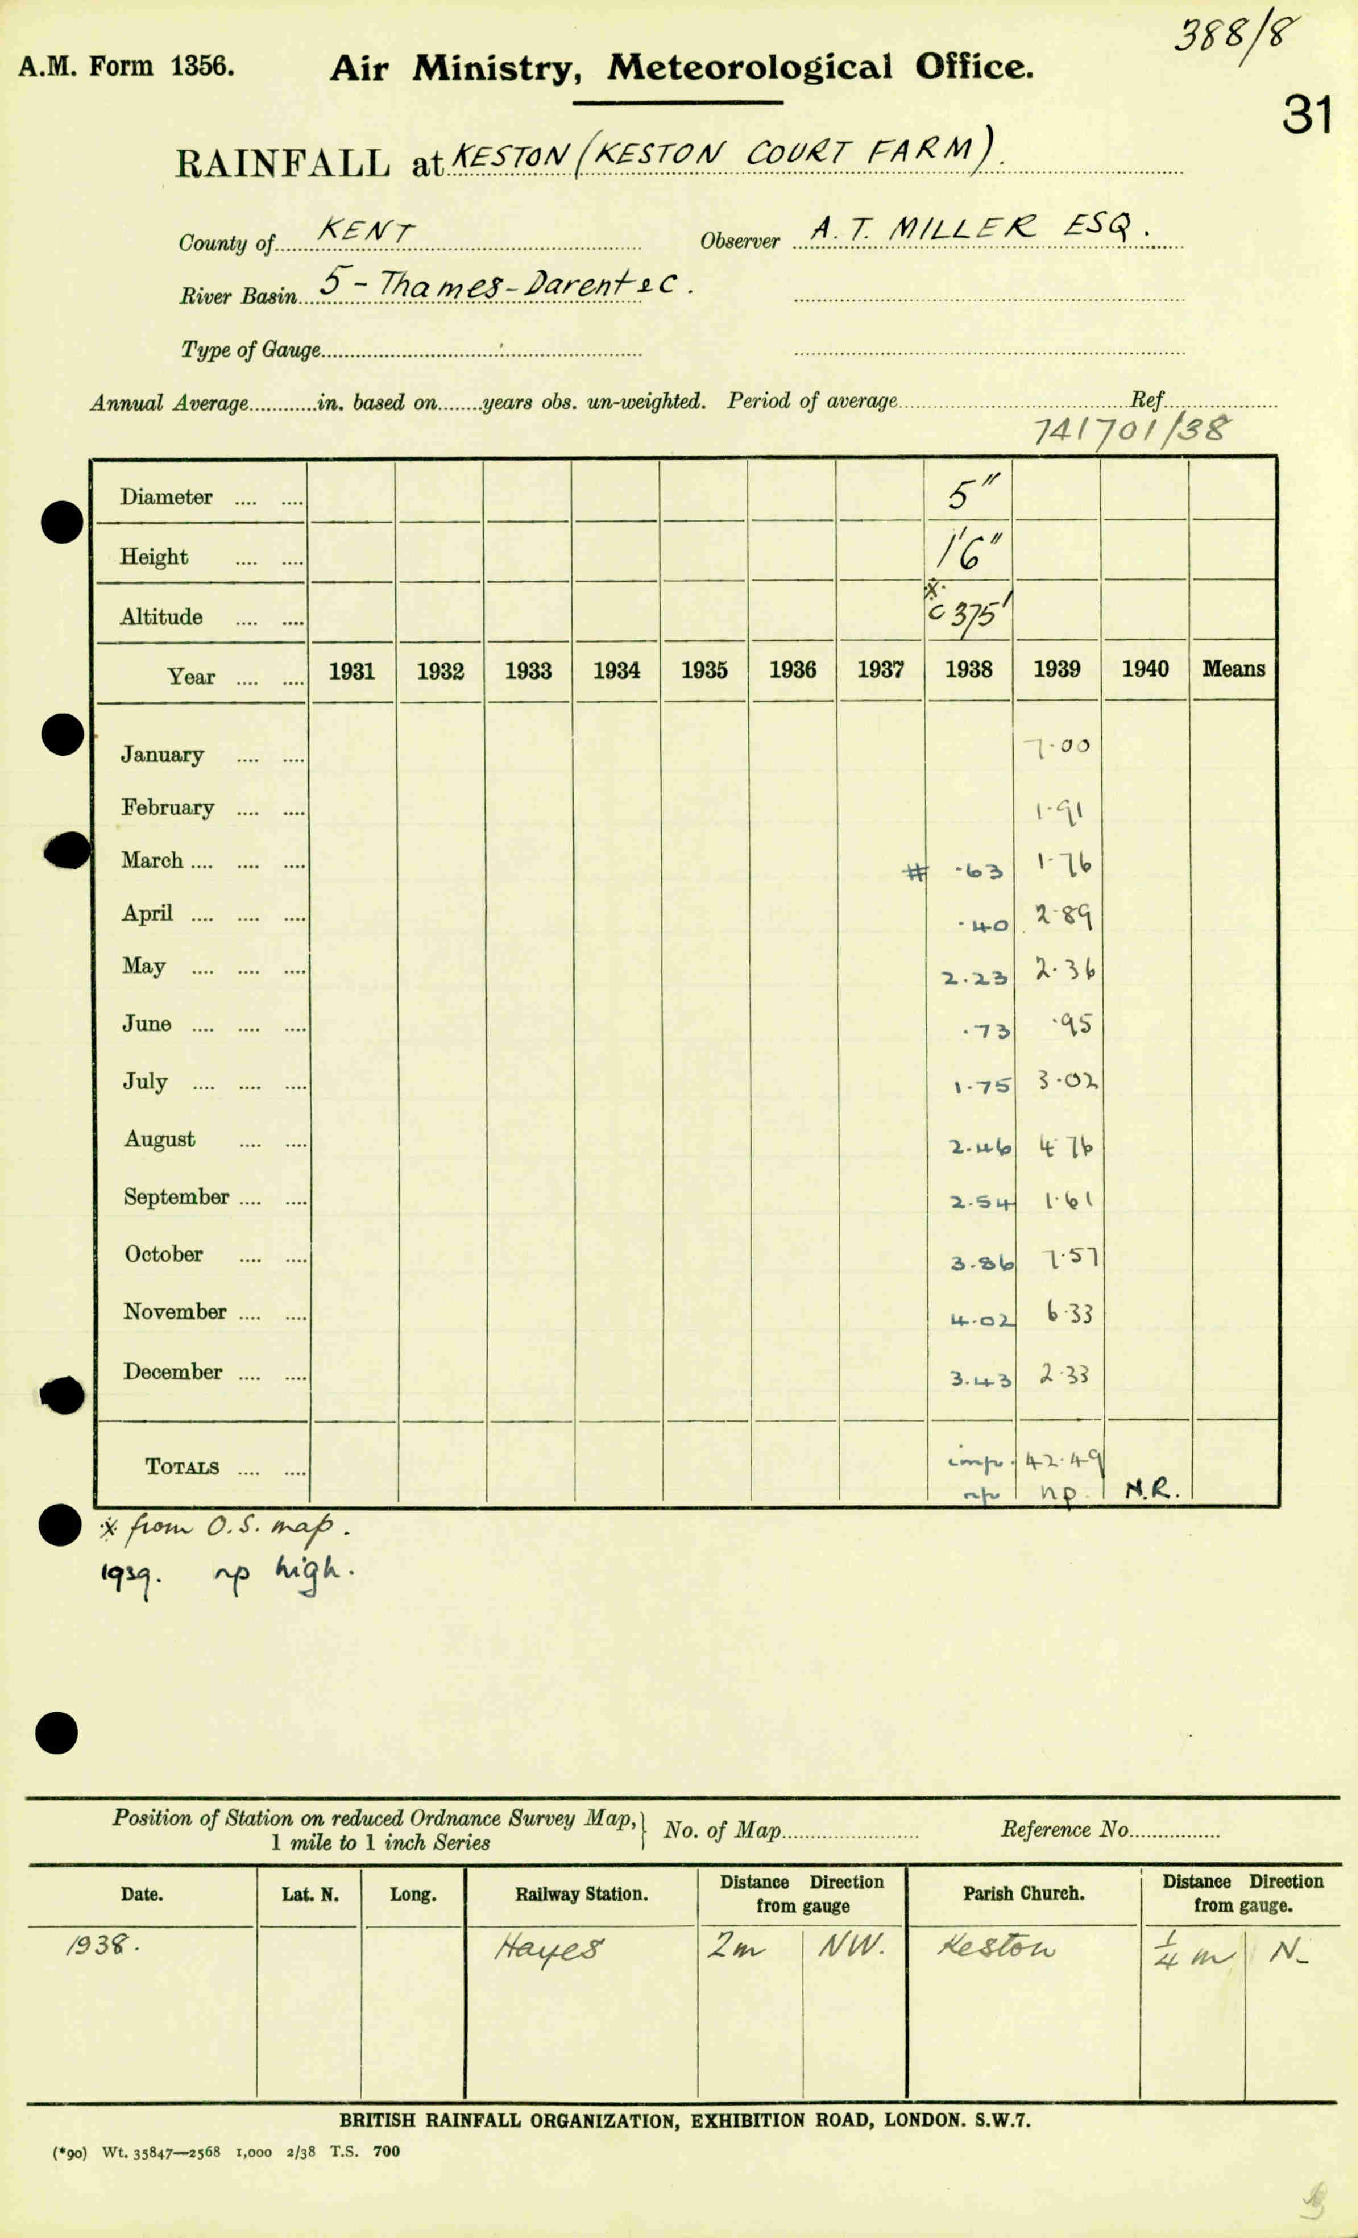 388/8
A.M. Form 1356. Air Ministry, Meteorological Office.
31
RAINFALL at KESTON (KESTON COURT FARM).
County of KENT Observer A. T. MILLER ESQ.
River Basin 5 - Thames - Darent &c.
Type of Gauge
Annual Average in. based on years obs. un-weighted. Period of average Ref
741701/38
Diameter 5"
Height 1'6"
Altitude x c 375'
Year 1931 1932 1933 1934 1935 1936 1937 1938 1939 1940 Means
January 7.00
February 1.91
March # .63 1.76
April .40 2.89
May 2.23 2.36
June .73 .95
July 1.75 3.02
August 2.46 4.76
September 2.54 1.61
October 3.86 7.57
November 4.02 6.33
December 3.43 2.33
TOTALS imp. 42.49
np np. N.R.
x from O.S. map.
1939. np high.
Position of Station on reduced Ordnance Survey Map, 1 mile to 1 inch Series No. of Map Reference No.
Date. Lat. N. Long. Railway Station. Distance Direction from gauge Parish Church. Distance Direction from gauge.
1938. Hayes 2m NW. Keston 1/4 m N.
BRITISH RAINFALL ORGANIZATION, EXHIBITION ROAD, LONDON. S.W.7.
(*90) Wt. 35847—2568 1,000 2/38 T.S. 700